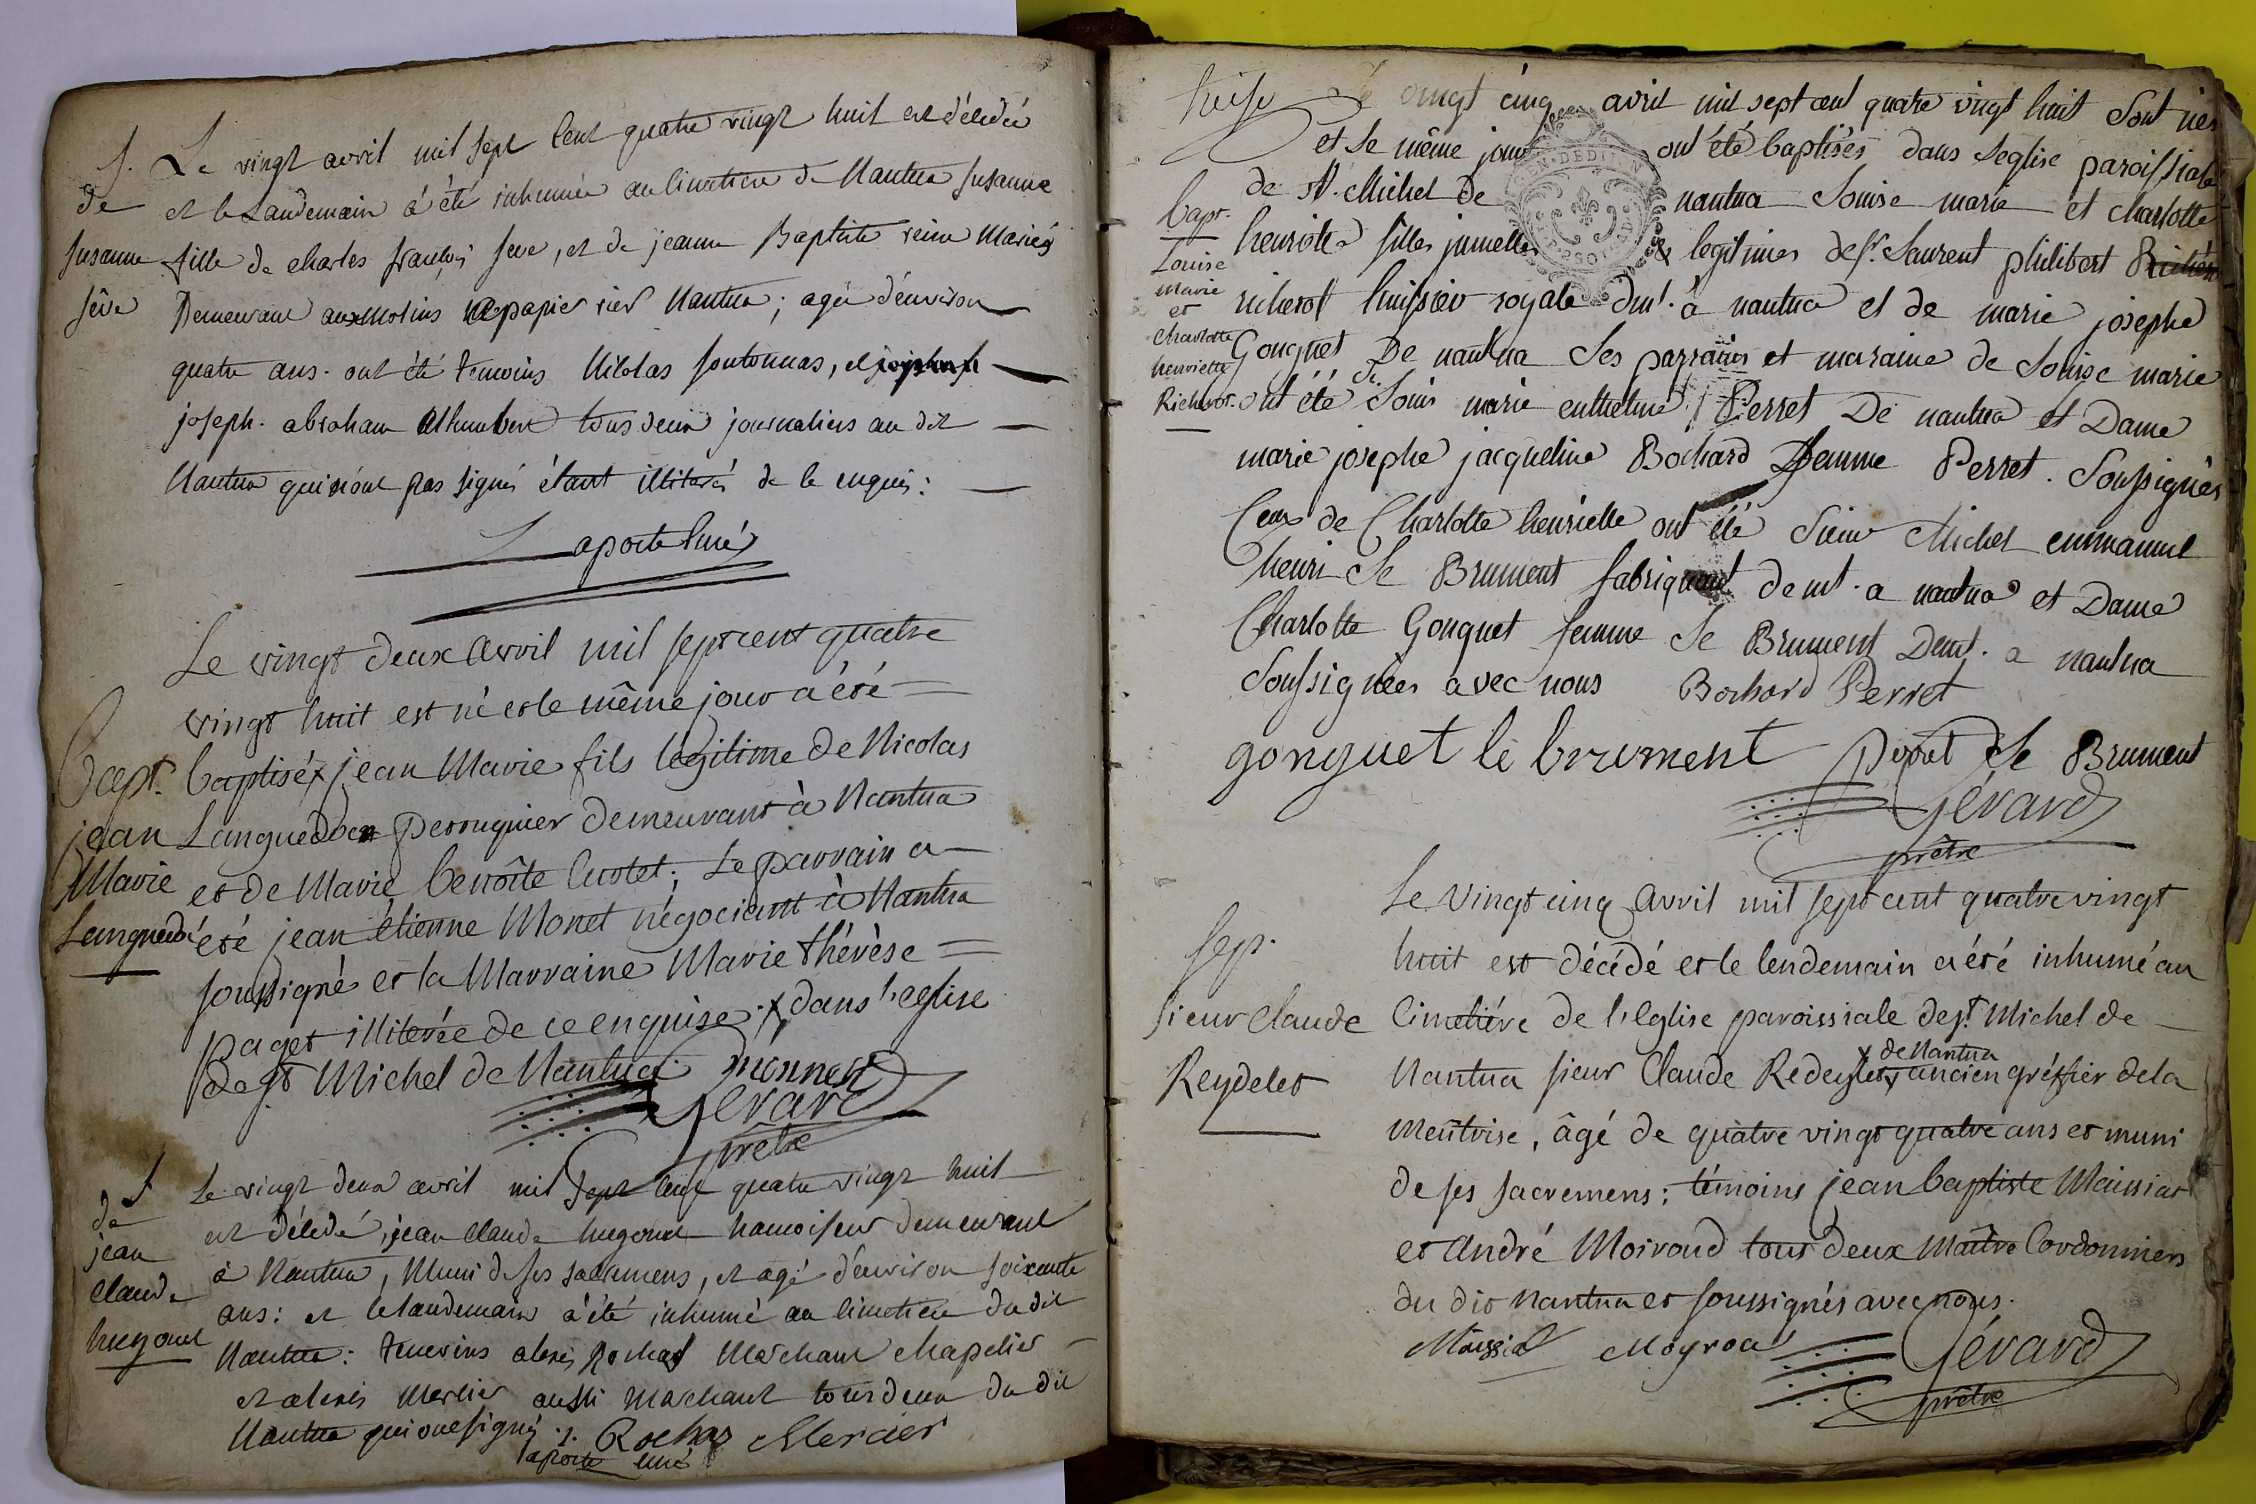 S.
de
Susanne
Sève
Le vingt avril mil Sept Cent quatre vingt huit est décedée
et le Landemain a été inhumée au Cimetiere de Nantua Susanne
fille de charles françois Seve, et de jeanne Baptiste reine Mariés
Demeurant aux molins papier rier Nantua ; agée d'environ
quatre ans. ont été temoins Nicolas Soutonnas, et
joseph. abraham Alhumbert tous deux journaliers au dit
Nantua qui n'ont pas signés étant illiterés de le enquis :
Laporte Curé
Bapt.
jean
Marie
Languedoc
Le vingt deux Avril mil sept cent quatre
vingt huit est né et le même jour a été
baptisé x jean Marie fils légitime de Nicolas
Languedoc perruquier demeurant à Nantua
et de Marie benoîte Curtet ; Le parrain a
été jean étienne Monet négociant à Nantua
soussigné et la Marraine Marie thérèse
paget illiterée de ce enquise . x dans l'eglise
de st Michel de Nantua Monnet
Gérard
prêtre
S
de
jean
Claude
hugonet
Le vingt deux avril mil Sept Cent quatre vingt huit
est décedé, jean Claude hugonet chamoiseur demeurant
à Nantua, Muni de ses sacremens, et agé d'environ soixante
ans : et le landemain a été inhumé au Cimetiere du dit
Nantua : temoins alexis Rochas Marchant chapelier
et alexis Mercier aussi Marchant tous deux du dit
Nantua qui ont signé ./. Rochas Mercier
laporte curé
treise
Bapt.
Louise
Marie
et
Charlotte
henriette
Richerot
Le vingt cinq avril mil sept cent quatre vingt huit Sont nés
et le même jour ont été baptisés dans Leglise paroissiale
de st. Michel de nantua Louise marie et charlotte
henriette filles jumelles & legitimes de sr. Laurent philibert
richerot huissier royale dmt. à nantua et de marie josephe
Gouguet De nantua Les parrains et maraine de Louise marie
ont été Sr. Louis marie enthelme Perret De nantua et Dame
marie josephe jacqueline Bochard femme Perret. Soussignés
Ceux de Charlotte henriette ont été Sieur Michel emmanuel
henri Le Brument fabriquant demt. a nantua et Dame
Charlotte Gouguet femme Le Brument Demt. a nantua
Soussignées avec nous Bochard Perret
gonguet le brument Perret Le Brument
Gérard
prêtre
Sep.
sieur Claude
Reydelet
Le Vingt cinq Avril mil sept cent quatre vingt
huit est décédé et le lendemain a été inhumé au
Cimetiére de l'Eglise paroissiale de st. Michel de
Nantua sieur Claude Redeylet x ancien gréffier de la
x de Nantua
meitrise, âgé de quatre vingt quatre ans et muni
de ses sacremens ; témoins jean baptiste Maissiat
et André Moiroud tous deux Maître Cordonniers
du dit Nantua et soussignés avec nous.
Maissiat Moyroud Gérard
prêtre